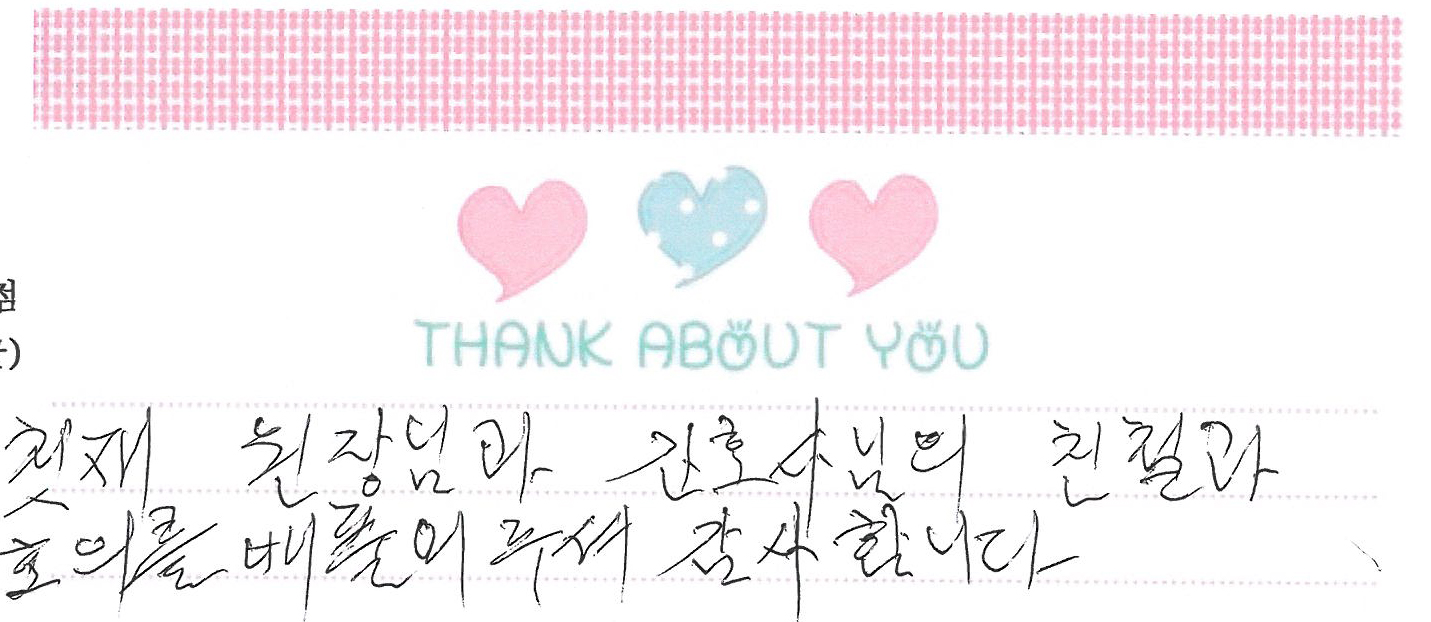 THANK ABOUT YOU
첫재 원장님과 간호사님의 친철과
호의를 배풀어 주셔 감사합니다